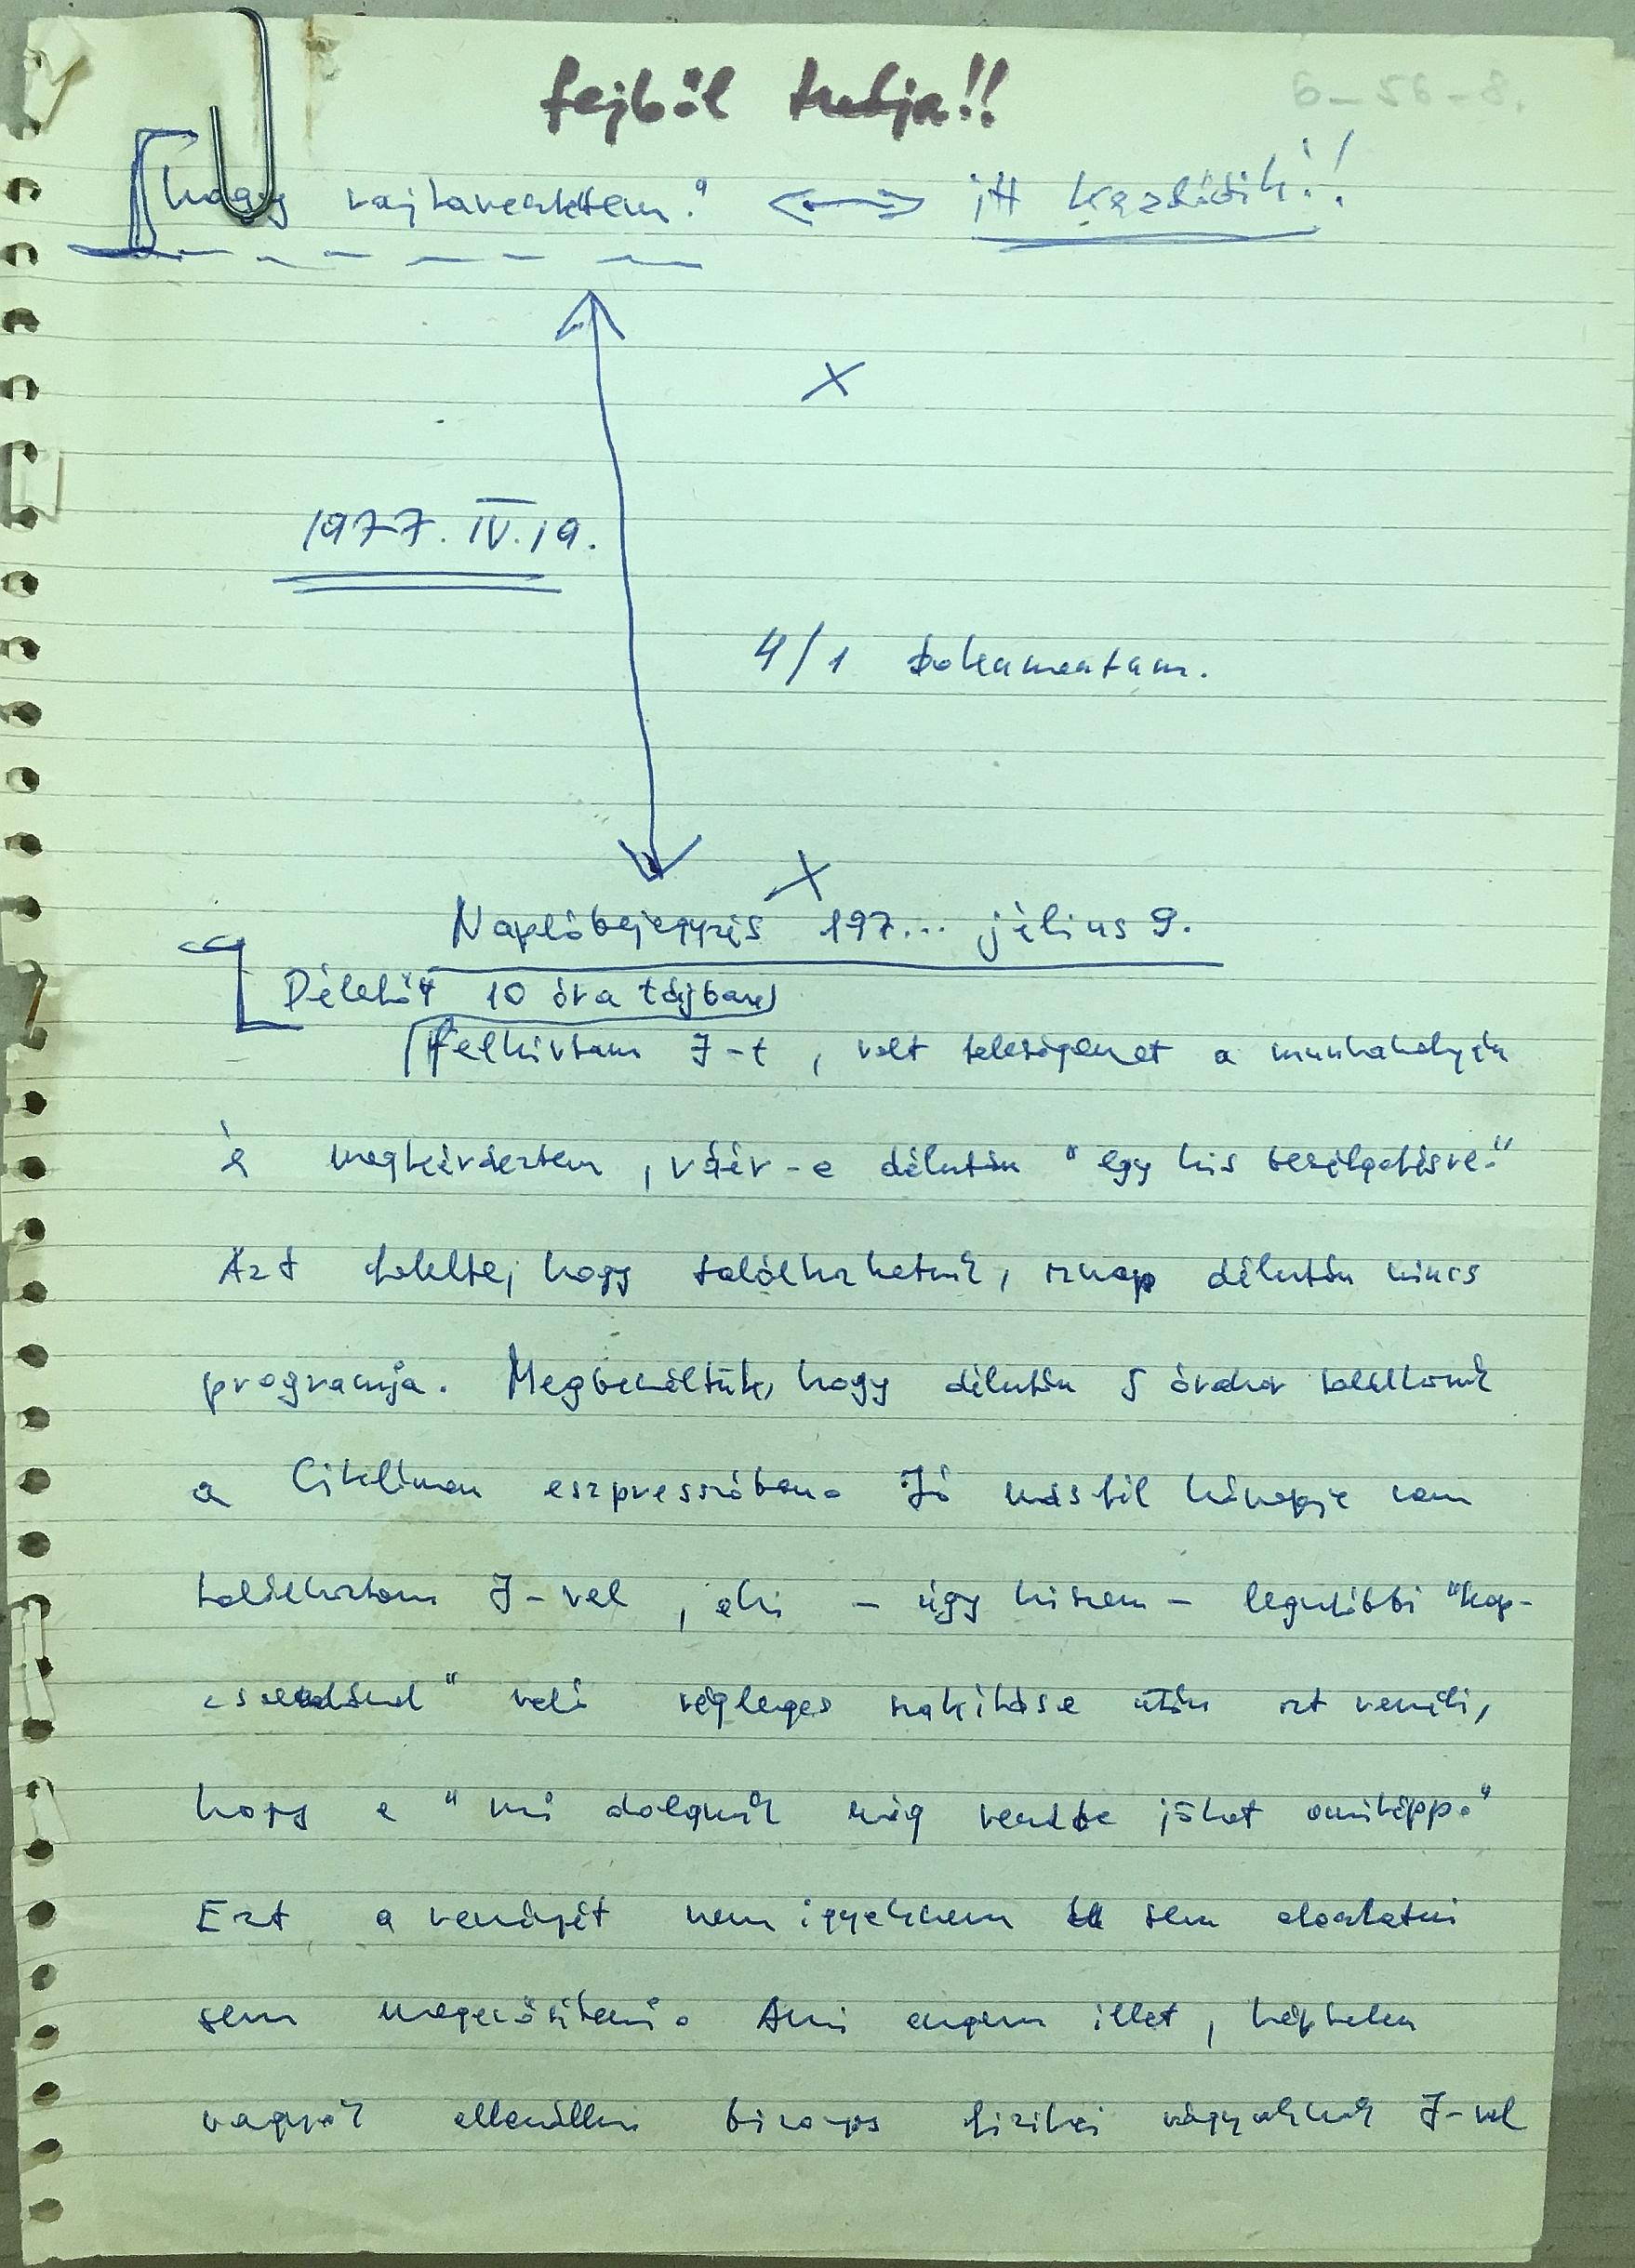 fejből tudja!!
6-56-8.
hogy rajtavesztem." ⟷ itt kezdődik!!
X
1977. IV. 19.
4/1 dokumentum.
X
Naplóbejegyzés 197... július 9.
Délelőtt 10 óra tájban
felhívtam J-t, volt feleségemet a munkahelyén
és megkérdeztem, ráér-e délután "egy kis beszélgetésre."
Azt felelte, hogy találkozhatunk, aznap délután nincs
programja. Megbeszéltük, hogy délután 5 órakor találkozunk
a Ciklámen eszpresszóban. Jó másfél hónapja nem
találkoztam J-vel, aki – úgy hiszem – legutóbbi "kap-
" való végleges szakítása után azt reméli,
hogy a "mi dolgunk még rendbe jöhet amiképp."
Ezt a reményét nem igyekszem sem eloszlatni
sem megerősíteni. Ami engem illet, képtelen
vagyok ellenállni bizonyos fizikai vágyaknak J-vel